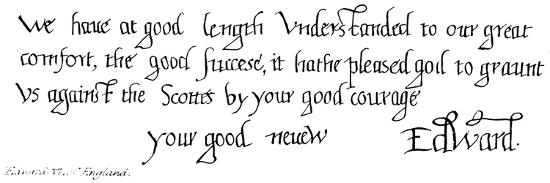 We haue at good length Vnderstanded to our great
comfort, the good successe, it hathe pleased god to graunt
Vs against the Scottes by your good courage
your good neuew Edward.
Edward VI. of England.